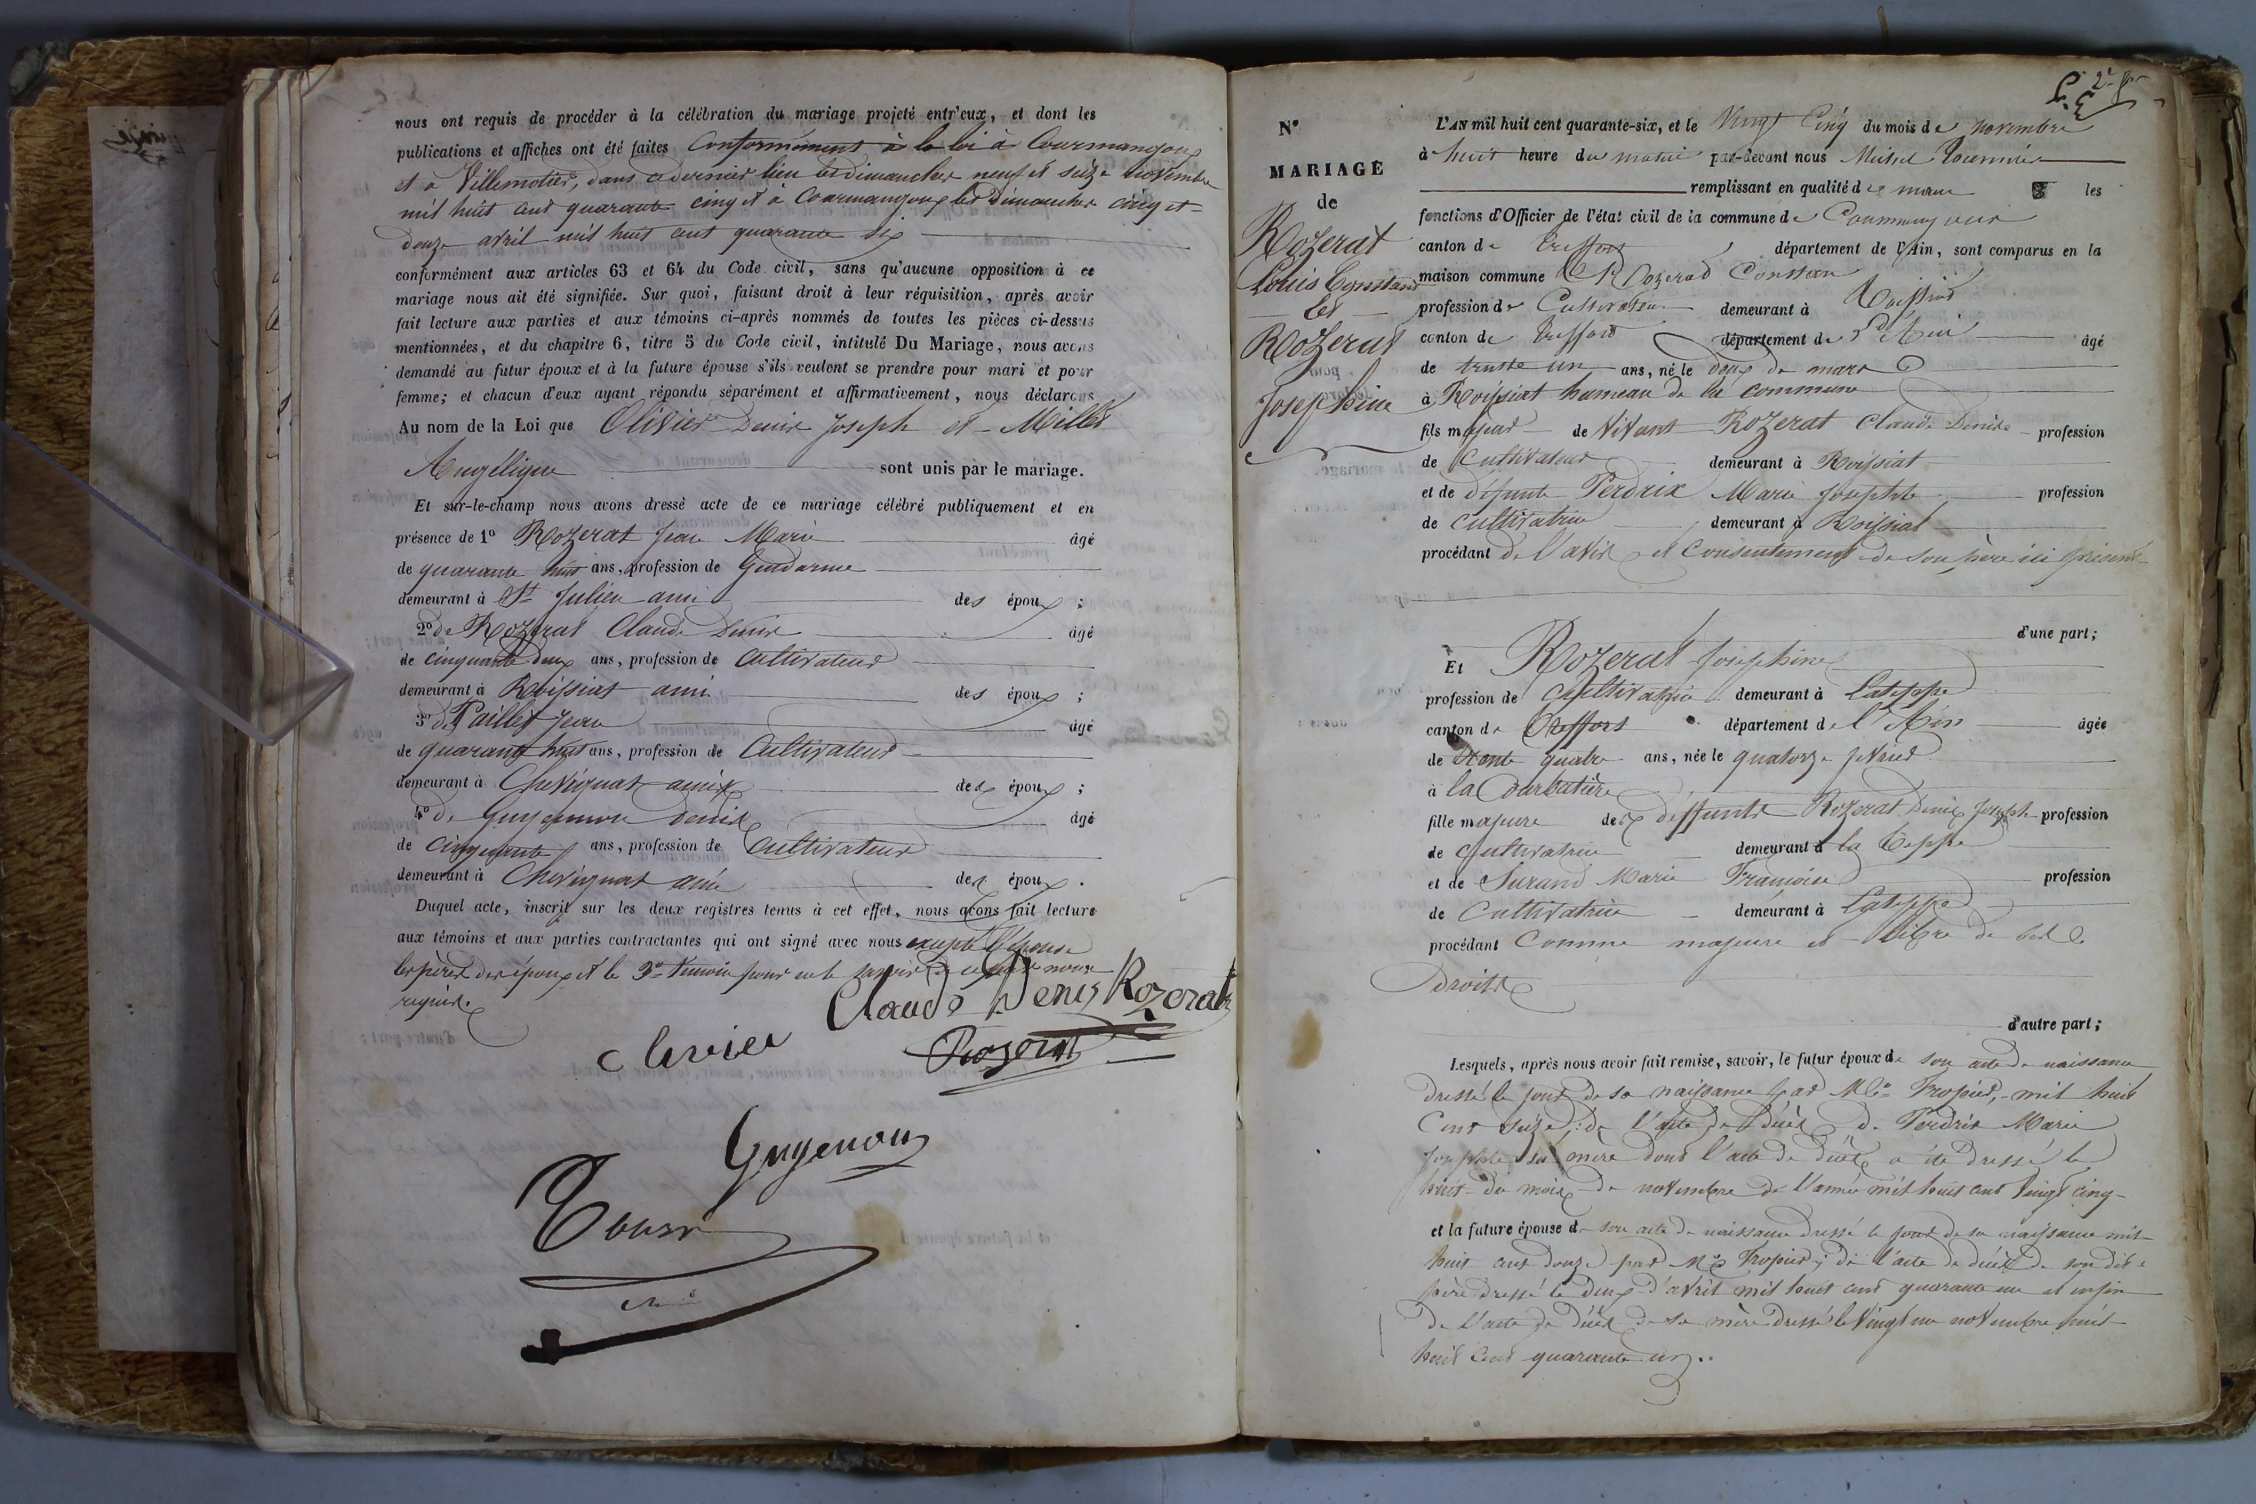 nous ont requis de procéder à la célébration du mariage projeté entr'eux, et dont les
publications et affiches ont été faites Conformément à la loi à Courmangoux
et à Villemotier, dans ce dernier lieu les dimanches neuf et seize novembre
mil huit cent quarante cinq et à Courmangoux les dimanches cinq et
douze avril mil huit cent quarante six
conformément aux articles 63 et 64 du Code civil, sans qu'aucune opposition à ce
mariage nous ait été signifiée. Sur quoi, faisant droit à leur réquisition, après avoir
fait lecture aux parties et aux témoins ci-après nommés de toutes les pièces ci-dessus
mentionnées, et du chapitre 6, titre 5 du Code civil, intitulé Du Mariage, nous avons
demandé au futur époux et à la future épouse s'ils veulent se prendre pour mari et pour
femme; et chacun d'eux ayant répondu séparément et affirmativement, nous déclarons
Au nom de la Loi que Olivier Denis Joseph et Millet
Angélique sont unis par le mariage.
Et sur-le-champ nous avons dressé acte de ce mariage célébré publiquement et en
présence de 1° Rozerat Jean Marie âgé
de quarante huit ans, profession de Gendarme
demeurant à St Julien ami des époux ;
2° de Rozerat Claude Denis âgé
de cinquante deux ans, profession de cultivateur
demeurant à Roissiat ami des époux ;
3° d. Paillet Jean âgé
de quarante huit ans, profession de Cultivateur
demeurant à Chevignat ami des époux ;
4° de Guyennon Denis âgé
de cinquante ans, profession de Cultivateur
demeurant à Chevignat ami des époux .
Duquel acte, inscrit sur les deux registres tenus à cet effet, nous avons fait lecture
aux témoins et aux parties contractantes qui ont signé avec nous excepté l'épouse
les pères des époux et le 3e témoin pour ne le savoir de ce par nous
requis.
Claude Denis Rozerat
Olivier Rozerat
Guyenon
N°
MARIAGE
de
Rozerat
Louis Constant
Et
Rozerat
Josephine
L'AN mil huit cent quarante-six, et le Vingt Cinq du mois de novembre
à huit heure du matin par-devant nous Michel
remplissant en qualité de maire les
fonctions d'Officier de l'état civil de la commune de Courmangoux
canton de Treffort département de l'Ain, sont comparus en la
maison commune Rozerat Constant
profession de Cultivateur demeurant à Roissiat
canton de Treffort département de l'Ain âgé
de trente un ans, né le deux de mars
à Roissiat hameau de la commune
fils majeur de vivant Rozerat Claude Denis profession
de cultivateur demeurant à Roissiat
et de défunte Perdrix Marie Josephte profession
de cultivatrice demeurant à Roissiat
procédant de l'avis et consentement de son père ici présent
d'une part;
Et Rozerat Josephine
profession de cultivatrice demeurant à Lateppe
canton de Treffort département de l'Ain âgée
de trente quatre ans, née le quatorze fevrier
à la Courbatière
fille majeure des deffunts Rozerat Denis Joseph profession
de cultivatrice demeurant à la Teppe
et de Surand Marie Françoise profession
de Cultivatrice demeurant à Lateppe
procédant comme majeure et libre de ses
droits
d'autre part;
Lesquels, après nous avoir fait remise, savoir, le futur époux de son acte de naissance
dressé le jour de sa naissance par Mr Tropier, mil huit
Cent seize; de l'acte de décès de Perdrix Marie
Josephte sa mère dont l'acte de décès a été dressé le
huit du mois de novembre de l'année mil huit cent vingt cinq
et la future épouse de son acte de naissance dressé le jour de sa naissance mil
huit cent douze par Mr Tropier; de l'acte de décès de son dit
père dressé le deux d'avril mil huit cent quarante un et enfin
de l'acte de décès de sa mère dressé le vingt un novembre mil
huit cent quarante un..